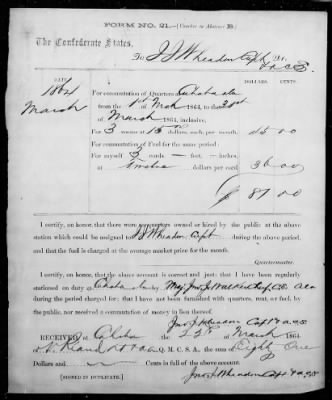 FORM No. 21.—(Voucher to Abstract B.)
The Confederate States,
To J J Wheadon Capt Dr.
DATE. DOLLARS. CENTS.
1864
March
For commutation of Quarters Cahaba Ala
from the 1st of Mch 1864, to the 31st
of March 1864, inclusive,
For 3 rooms a 15 dollars, each, per month. 45 00
For commutation of Fuel for the same period:
For myself 3 cords — feet, — inches,
at Twelve dollars per cord 36 00
$ 81 00
I certify, on honor, that there were no quarters owned or hired by the public at the above
station which could be assigned to J J Wheadon Capt during the above period,
and that the fuel is charged at the average market price for the month.
Quartermaster.
I certify, on honor, that the above account is correct and just: that I have been regularly
stationed on duty at Cahaba by Maj Jno J Walker Ala
during the period charged for: that I have not been furnished with quarters, rent, or fuel, by
the public, nor received a commutation of money in lieu thereof.
Jno J Wheadon Capt & A.C.S
RECEIVED at Cahaba the March 1864
of Q. M. C. S. A., the sum of Eighty One
Dollars and Cents in full of the above account.
[SIGNED IN DUPLICATE.] Jno J Wheadon Capt & A.C.S